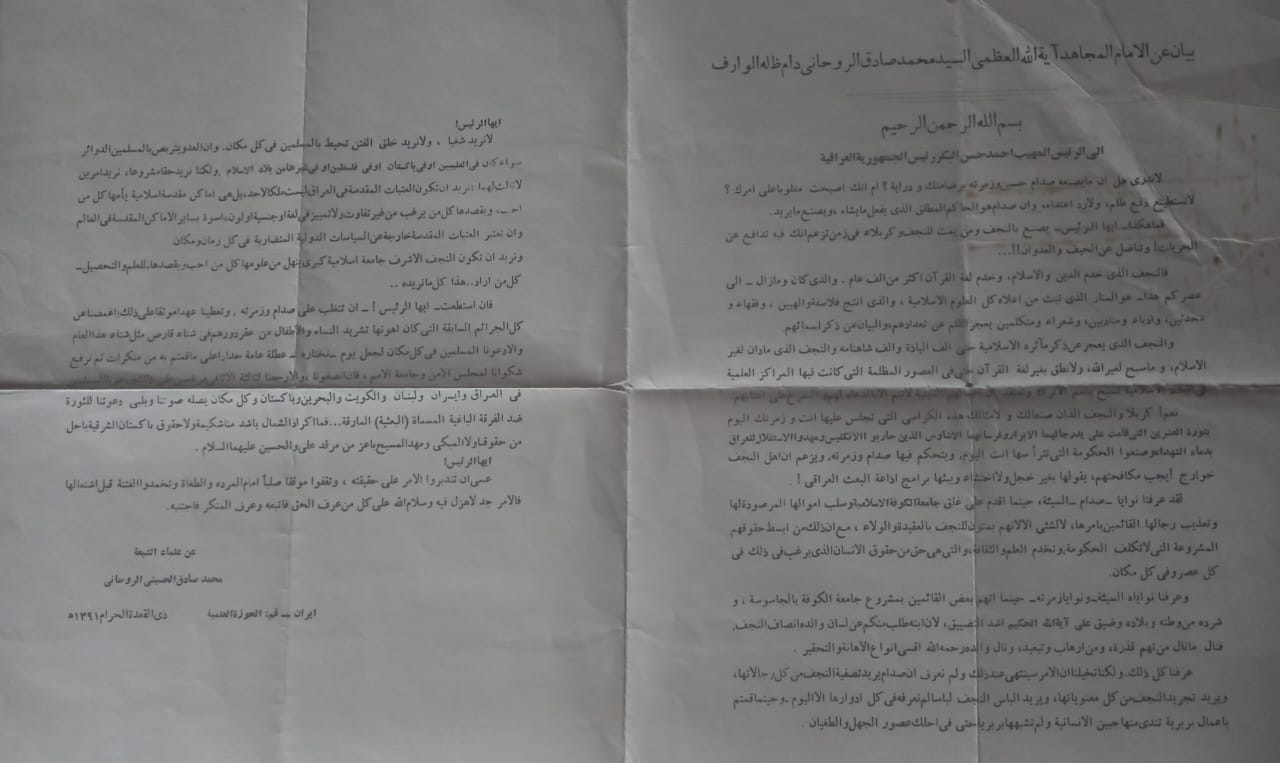 بيان عن الامام المجاهد آية الله العظمى السيد محمد صادق الروحانى دام ظله الوارف
بسم الله الرحمن الرحيم
الى الرئيس المهيب احمد حسن البكر رئيس الجمهورية العراقية
لاندرى هل ان ما يصنعه صدام حسين وزمرته برضا منك و دراية ؟ ام انك اصبحت مغلوبا على امرك ؟
لاتستطيع دفع ظلم، ولارد اعتداء، وان صدام هو الحاكم المطلق الذى يفعل ما يشاء ، ويصنع ما يريد.
فما هكذا ـ ايها الرئيس ـ يصنع بالنجف ومن يمت للنجف وكربلاء فى زمن تزعم انك فيه تدافع عن
الحريات! وتناضل عن الحيف والعدوان!!...
فالنجف الذى خدم الدين والاسلام، وخدم لغة القرآن اكثر من الف عام . والذى كان ومازال ـ الى
عصركم هذا ـ هو المنار الذى تبث من اعلاه كل العلوم الاسلامية ، والذى انتج فلاسفة والهيين ، وفقهاء و
محدثين، وادباء ومتأدبين، وشعراء ومتكلمين يعجز القلم عن تعدادهم والبيان عن ذكر اسمائهم.
والنجف الذى يعجز عن ذكر مآثره الاسلامية حتى الف الياذة والف شاهنامه والنجف الذى مادان لغير
الاسلام، و ماسبح لغير الله، ولانطق بغير لغة القرآن حتى فى العصور المظلمة التى كانت فيها المراكز العلمية
نعم! كربلا والنجف الذان صنعا لك و لامثالك هذه الكراسى التى تجلس عليها انت و زمرتك اليوم
بثورة العشرين التى قامت على يد رجالهما الابرار وفرسانهما الاشاوس الذين حاربوا الانكليس ومهدوا الاستقلال للعراق
بدماء الشهداء وصنعوا الحكومة التى تترأسها انت اليوم. ويتحكم فيها صدام وزمرته، ويزعم ان اهل النجف
خوارج ! يجب مكافحتهم، يقولها بغير خجل ولا احتشاء ويبثها برامج اذاعة البعث العراقى ! .
لقد عرفنا نوايا ـ صدام ـ السيئة، حينما اقدم على غلق جامعة الكوفة الاسلامية وسلب اموالها المرصودة لها
وتعذيب رجالها القائمين بامرها، لالشئى الا لانهم يمتون للنجف بالعقيدة والولاء ، مع ان ذلك من ابسط حقوقهم
المشروعة التى لاتكلف الحكومة، وتخدم العلم والثقافة، والتى هى حق من حقوق الانسان الذى يرغب فى ذلك فى
كل عصر وفى كل مكان.
وعرفنا نواياه السيئة ـ و نوايا زمرته ـ حينما اتهم بعض القائمين بمشروع جامعة الكوفة بالجاسوسة ، و
شرده من وطنه و بلاده وضيق على آية الله الحكيم اشد التضييق، لان ابنه طلب منكم عن لسان والده انصاف النجف،
فنال مانال من تهم قذرة، ومن ارهاب وتبعيد، ونال والده رحمه الله اقسى انواع الاهانة والتحقير .
عرفنا كل ذلك. ولكنا تخيلنا ان الامر سينتهى عند ذلك ولم نعرف ان صدام يريد تصفية النجف من كل رجالاتها،
ويريد تجريد النجف من كل معنوياتها، ويريد الباس النجف لباسا لم نعرفه فى كل ادوارها الا اليوم ـ وحينما قمتم
باعمال بربرية تندى منها جبين الانسانية ولم تشبهها بربرية حتى فى احلك عصور الجهل والطغيان .
ايها الرئيس!
لانريد شغبا ، ولانريد خلق الفتن تحيط بالمسلمين فى كل مكان. وان العدو يتربص بالمسلمين الدوائر
سواء كان فى الفليبين او فى باكستان او فى فلسطين او فى غيرها من بلاد الاسلام ولكنا نريد حقا مشروعا، نريد امرين
لاثالث لهما: نريد ان تكون العتبات المقدسة فى العراق ليست ملكا لاحد، بل هى اماكن مقدسة اسلامية يأمها كل من
احب، ويقصدها كل من يرغب من غير تفاوت ولا تمييز فى لغة او جنسية او لون، اسوة بساير الاماكن المقدسة فى العالم
وان نعتبر العتبات المقدسة خارجة عن السياسات الدولية المتضاربة فى كل زمان ومكان
ونريد ان تكون النجف الاشرف جامعة اسلامية كبرى ينهل من علومها كل من احب و يقصدها، للعلم والتحصيل ـ
كل من اراد.. هذا كل مانريده ..
فان استطعت ـ ايها الرئيس ! ـ ان تتغلب على صدام وزمرته . وتعطينا عهدا موثقا على ذلك: اغمضنا عن
كل الجرائم السابقة التى كان اهونها تشريد النساء والاطفال من عقر دورهم فى شتاء قارص مثل شتاء هذا العام
والا دعونا المسلمين فى كل مكان لجعل يوم ـ نختاره ـ عطلة عامة حدادا على ماقمتم به من منكرات ثم نرفع
شكوانا لمجلس الامن وجامعة الامم ، فان انصفونا
فى العراق وايران ولبنان والكويت والبحرين وباكستان وكل مكان يصله صوتنا ويلبى دعوتنا للثورة
ضد الفرقة الباغية المسماة (البعثية) المارقة... فما اكراد الشمال باشد منا شكيمة ولا حقوق باكستان الشرقية باجل
من حقوقنا ولا المبكى ومهد المسيح باعز من مرقد على والحسين عليهما السلام .
ايها الرئيس!
عسى ان تتدبروا الامر على حقيقته ، وتقفوا موقفا صلباً امام المرده والطغاة وتخمدوا الفتنة قبل اشتعالها
فالامر جد لاهزل فيه وسلام الله على كل من عرف الحق فاتبعه وعرف المنكر فاجتنبه.
عن علماء الشيعة
محمد صادق الحسينى الروحانى
ايران ـ قم: الحوزة العلمية ذى القعدة الحرام ١٣٩١ه